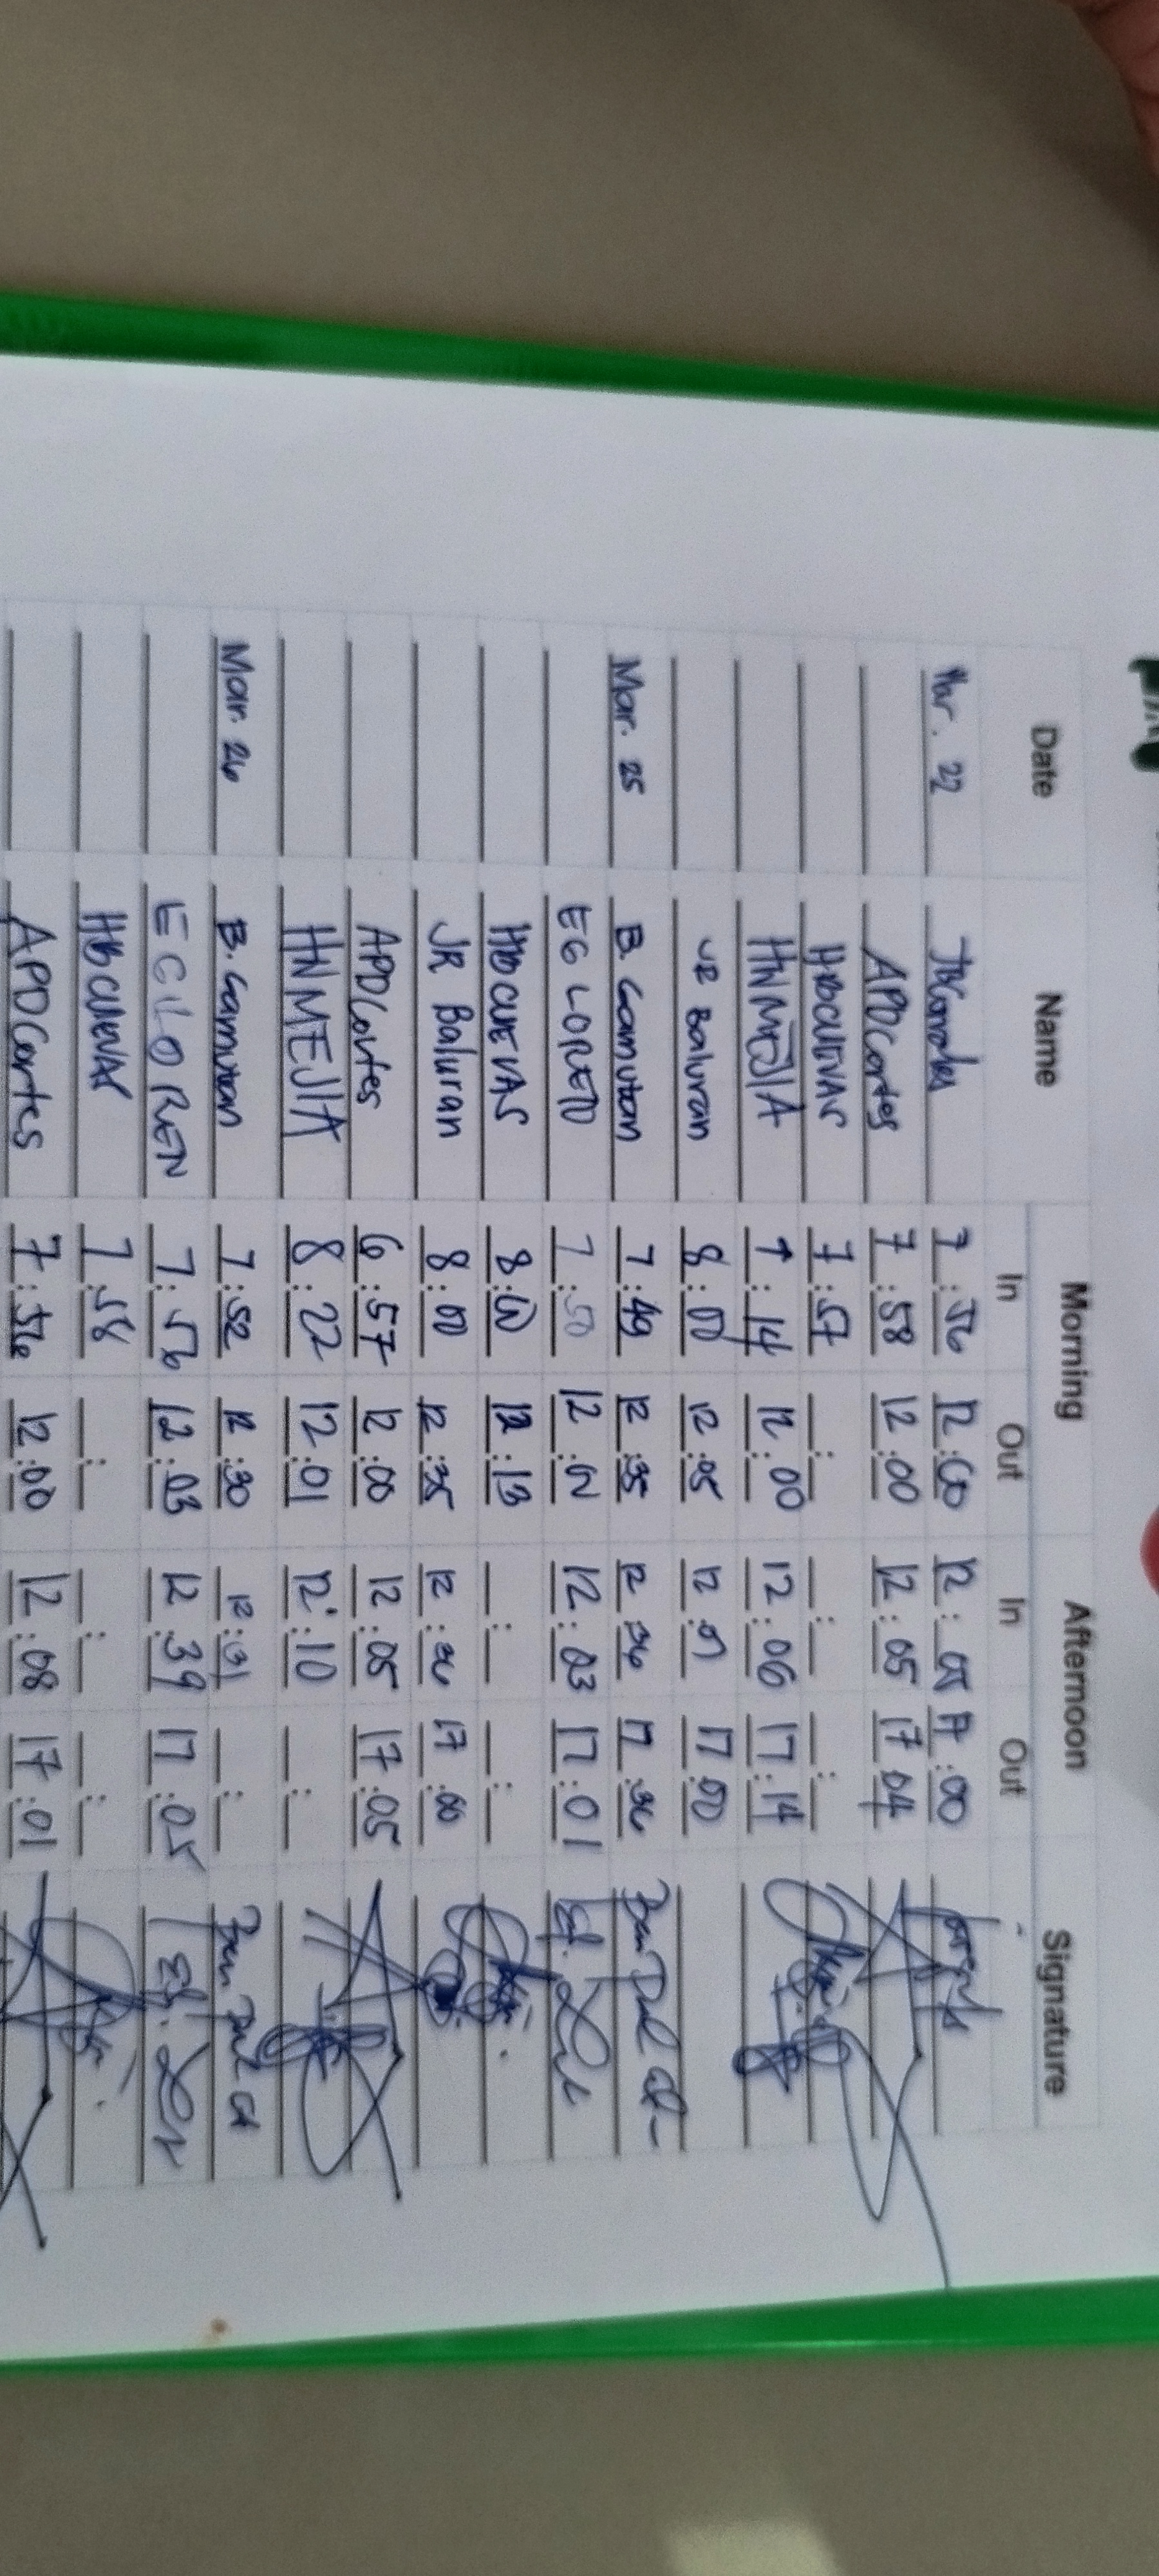 Date Name Morning Afternoon Signature
In Out In Out
Mar. 22 7:56 12:00 12:05 17:00
APDCortes 7:58 12:00 12:05 17:04
HBCUEVAS 7:57
HNMEJIA 7:14 12:00 12:06 17:14
JR Baluran 8:00 12:05 17:00
Mar. 25 B. Camuton 7:49 12:35 12:36 17:36
EG LORETO 7:50 12:02 12:03 17:01
HBCUEVAS 12:13
JR Baluran 8:00 12:35 12:36 17:00
APDCortes 6:57 12:00 12:05 17:05
HNMEJIA 8:22 12:01 12:10
Mar. 26 B. Camuton 7:52 12:30 12:31
7:56 12:03 12:39 17:05
HBCUEVAS 7:58
APDCortes 7:56 12:00 12:08 17:01